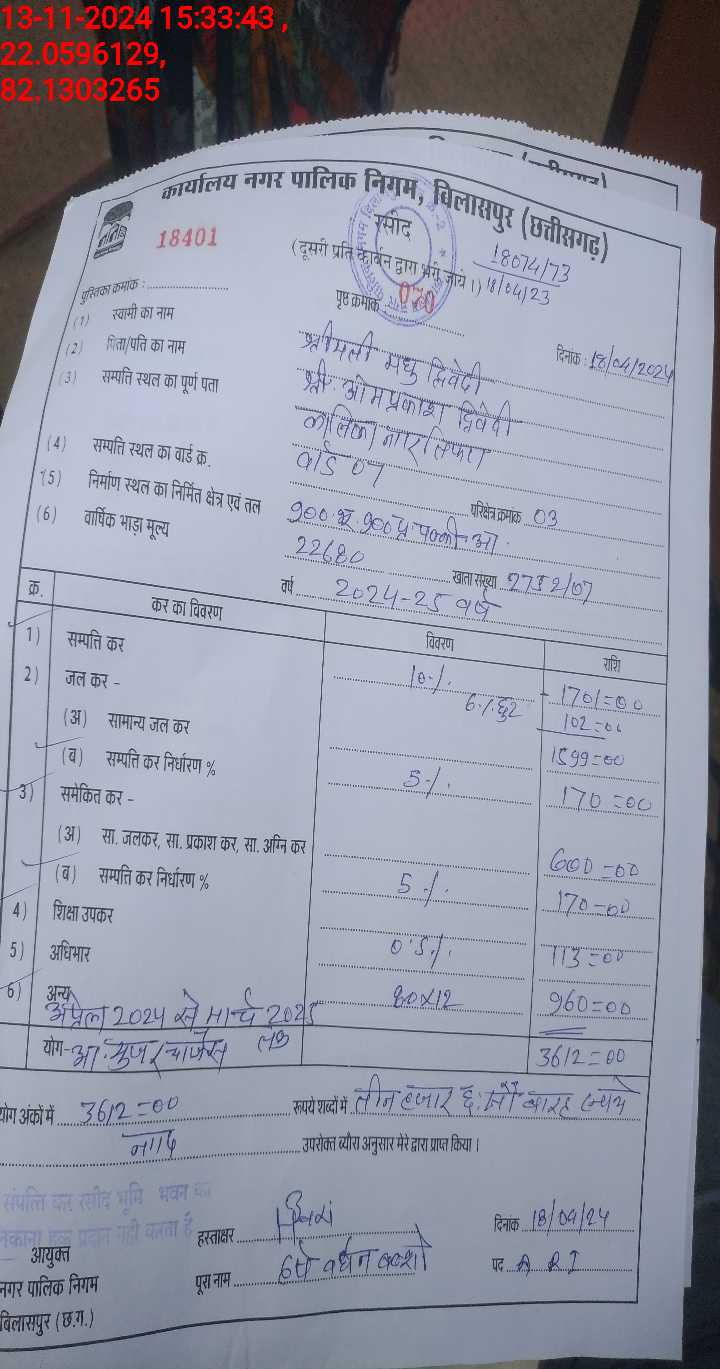 13-11-2024 15:33:43 ,
22.0596129,
82.1303265
कार्यालय नगर पालिक निगम, बिलासपुर (छत्तीसगढ़)
रसीद
18401
(दूसरी प्रति कार्बन द्वारा भरी जाये।)
18074/73
18/04/23
पुस्तिका क्रमांक :
पृष्ठ क्रमांक 070
दिनांक : 18/04/2024
(1) स्वामी का नाम श्रीमती मधु द्विवेदी
(2) पिता/पति का नाम श्री. ओमप्रकाश द्विवेदी
(3) सम्पत्ति स्थल का पूर्ण पता
(4) सम्पत्ति स्थल का वार्ड क्र. वार्ड 07 परिक्षेत्र क्रमांक 03
(5) निर्माण स्थल का निर्मित क्षेत्र एवं तल 900 900
(6) वार्षिक भाड़ा मूल्य 22680 खाता संख्या 2732/07
वर्ष 2024-25 वर्ष
क्र. कर का विवरण विवरण राशि
1) सम्पत्ति कर 10 ./. 1701=00
6./.छुट 102=00
2) जल कर -
(अ) सामान्य जल कर 1599=00
(ब) सम्पत्ति कर निर्धारण % 5 ./. 170=00
3) समेकित कर -
(अ) सा. जलकर, सा. प्रकाश कर, सा. अग्नि कर 600=00
(ब) सम्पत्ति कर निर्धारण % 5 ./. 170=00
4) शिक्षा उपकर 0.5 ./. 113=00
5) अधिभार
6) अन्य 80x12 960=00
अप्रैल 2024 से मार्च 2025 तक
योग- यूजर चार्जेस 3612=00
योग अंकों में 3612=00 रूपये शब्दों में तीन हजार छ: सौ बारह रूपये
मात्र उपरोक्त ब्यौरा अनुसार मेरे द्वारा प्राप्त किया।
संपत्ति कर रसीद भूमि भवन का
हक प्रदान नही करता है
हस्ताक्षर दिनांक 18/04/24
आयुक्त
पूरा नाम पद ARI
नगर पालिक निगम
बिलासपुर (छ.ग.)